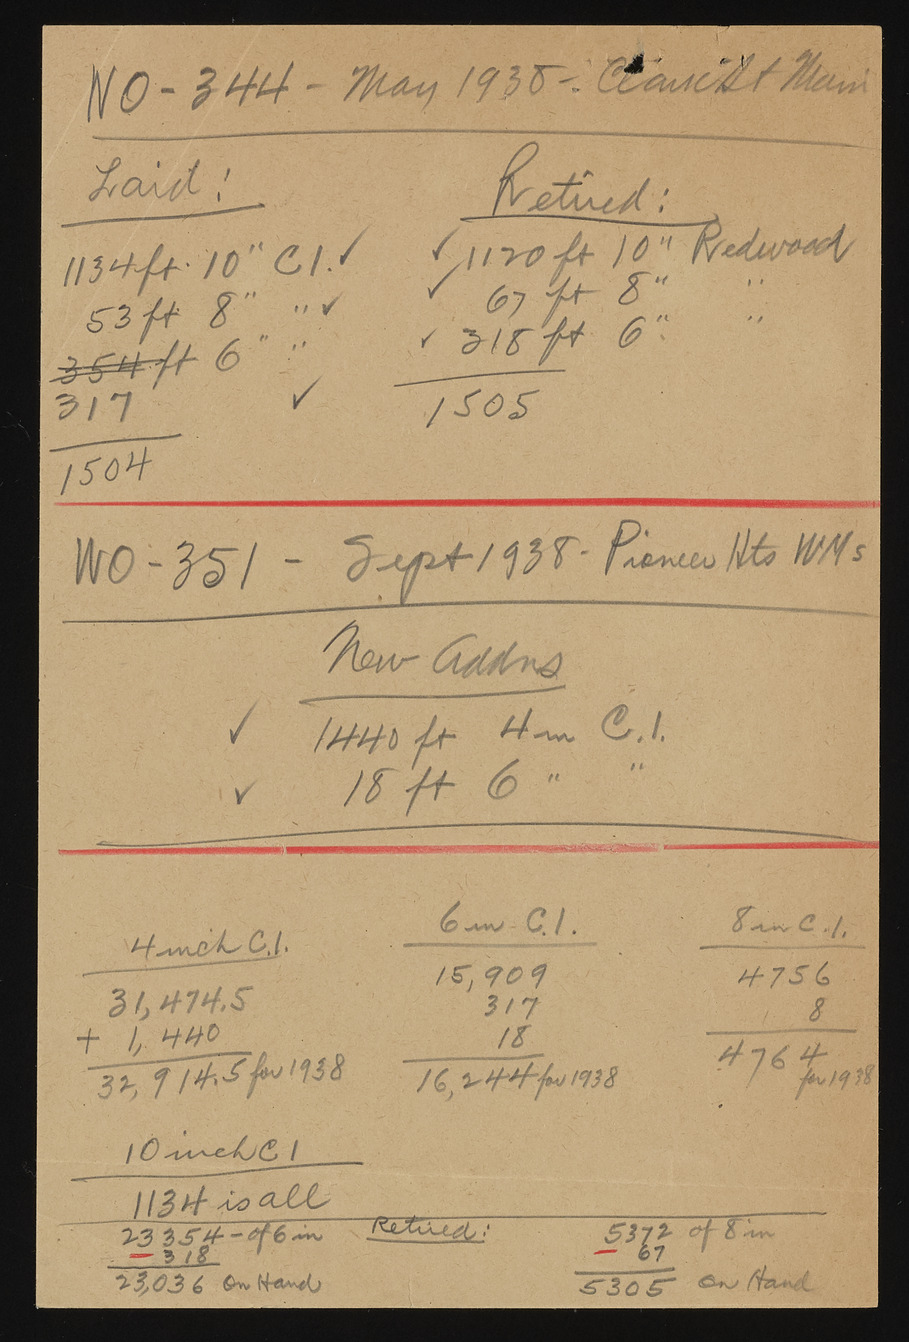 WO - 344 - May 1938 - Clark St Main
Laid:
1134 ft. 10" C.I. ✓
53 ft 8" " ✓
354 ft 6" "
317 ✓
1504
Retired:
✓ 1120 ft 10" Redwood
✓ 67 ft 8" "
✓ 318 ft 6" "
1505
WO - 351 - Sept 1938 - Pioneer Hts WMs
New Addns
✓ 1440 ft 4 in C.I.
✓ 18 ft 6 " "
4 inch C.I.
31,474.5
+ 1,440
32,914.5 for 1938
6 in C.I.
15,909
317
18
16,244 for 1938
8 in C.I.
4756
8
4764
for 1938
10 inch C I
1134 is all
Retired:
23354 - of 6 in
- 318
23,036 on Hand
5372 of 8 in
- 67
5305 on Hand